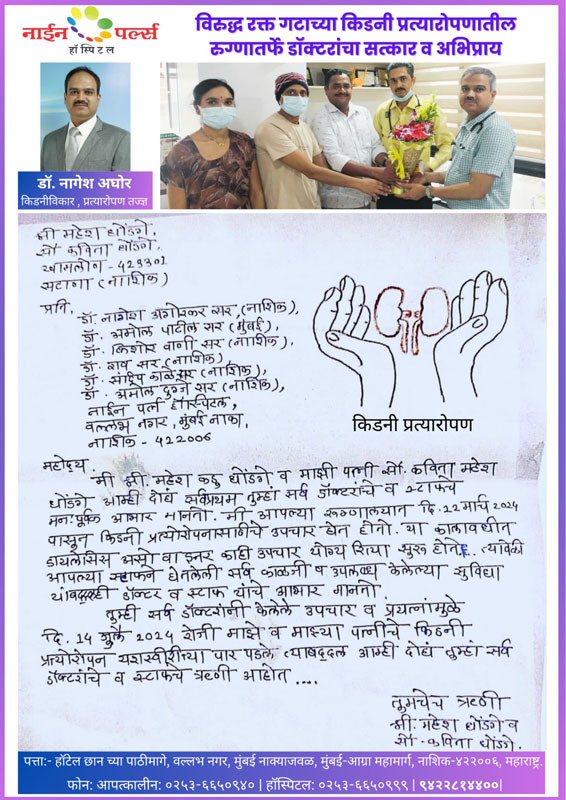 नाईन पर्ल्स
हॉस्पिटल
विरुद्ध रक्त गटाच्या किडनी प्रत्यारोपणातील
रुग्णातर्फे डॉक्टरांचा सत्कार व अभिप्राय
डॉ. नागेश अघोर
किडनीविकार , प्रत्यारोपण तज्ज्ञ
श्री महेश धोंडगे,
सौ कविता धोंडगे.
खामलोण - 423301
सटाणा (नाशिक)
प्रति,
डॉ. नागेश अघोरकर सर, (नाशिक),
डॉ. अमोल पाटील सर (मुंबई),
डॉ. किशोर वाणी सर (नाशिक),
डॉ. राव सर (नाशिक)
डॉ. संदिप काळे सर (नाशिक),
डॉ. अमोल दुग्जे सर (नाशिक),
नाईन पर्ल हॉस्पिटल,
वल्लभ नगर, मुंबई नाका,
नाशिक - 422006
किडनी प्रत्यारोपण
महोदय,
मी श्री. महेश कडु धोंडगे व माझी पत्नी सौ. कविता महेश
धोंडगे आम्ही दोघे सर्वप्रथम तुम्हा सर्व डॉक्टरांचे व स्टाफचे
मनःपूर्वक आभार मानतो. मी आपल्या रुग्णालयात दि. 22 मार्च 2024
पासून किडनी प्रत्यारोपनासाठीचे उपचार घेत होतो. या कालावधीत
डायलेसिस असो वा इतर काही उपचार योग्य रित्या सुरू होते. त्यावेळी
आपल्या स्टाफने घेतलेली सर्व काळजी व उपलब्ध केलेल्या सुविधा
यांबद्दलही डॉक्टर व स्टाफ यांचे आभार मानतो.
तुम्ही सर्व डॉक्टरांनी केलेले उपचार व प्रयत्नांमुळे
दि. 14 जुलै 2024 रोजी माझे व माझ्या पत्नीचे किडनी
प्रत्यारोपन यशस्वीरीत्या पार पडले त्याबद्दल आम्ही दोघे तुम्हा सर्व
डॉक्टरांचे व स्टाफचे ऋणी आहोत ....
तुमचेच ऋणी
श्री. महेश धोंडगे व
सौ. कविता धोंडगे.
पत्ता:- हॉटेल छान च्या पाठीमागे, वल्लभ नगर, मुंबई नाक्याजवळ, मुंबई-आग्रा महामार्ग, नाशिक-४२२००६, महाराष्ट्र.
फोन: आपत्कालीन: ०२५३-६६५०९४० | हॉस्पिटल: ०२५३-६६५०९९९ | ९४२२८१४४००|